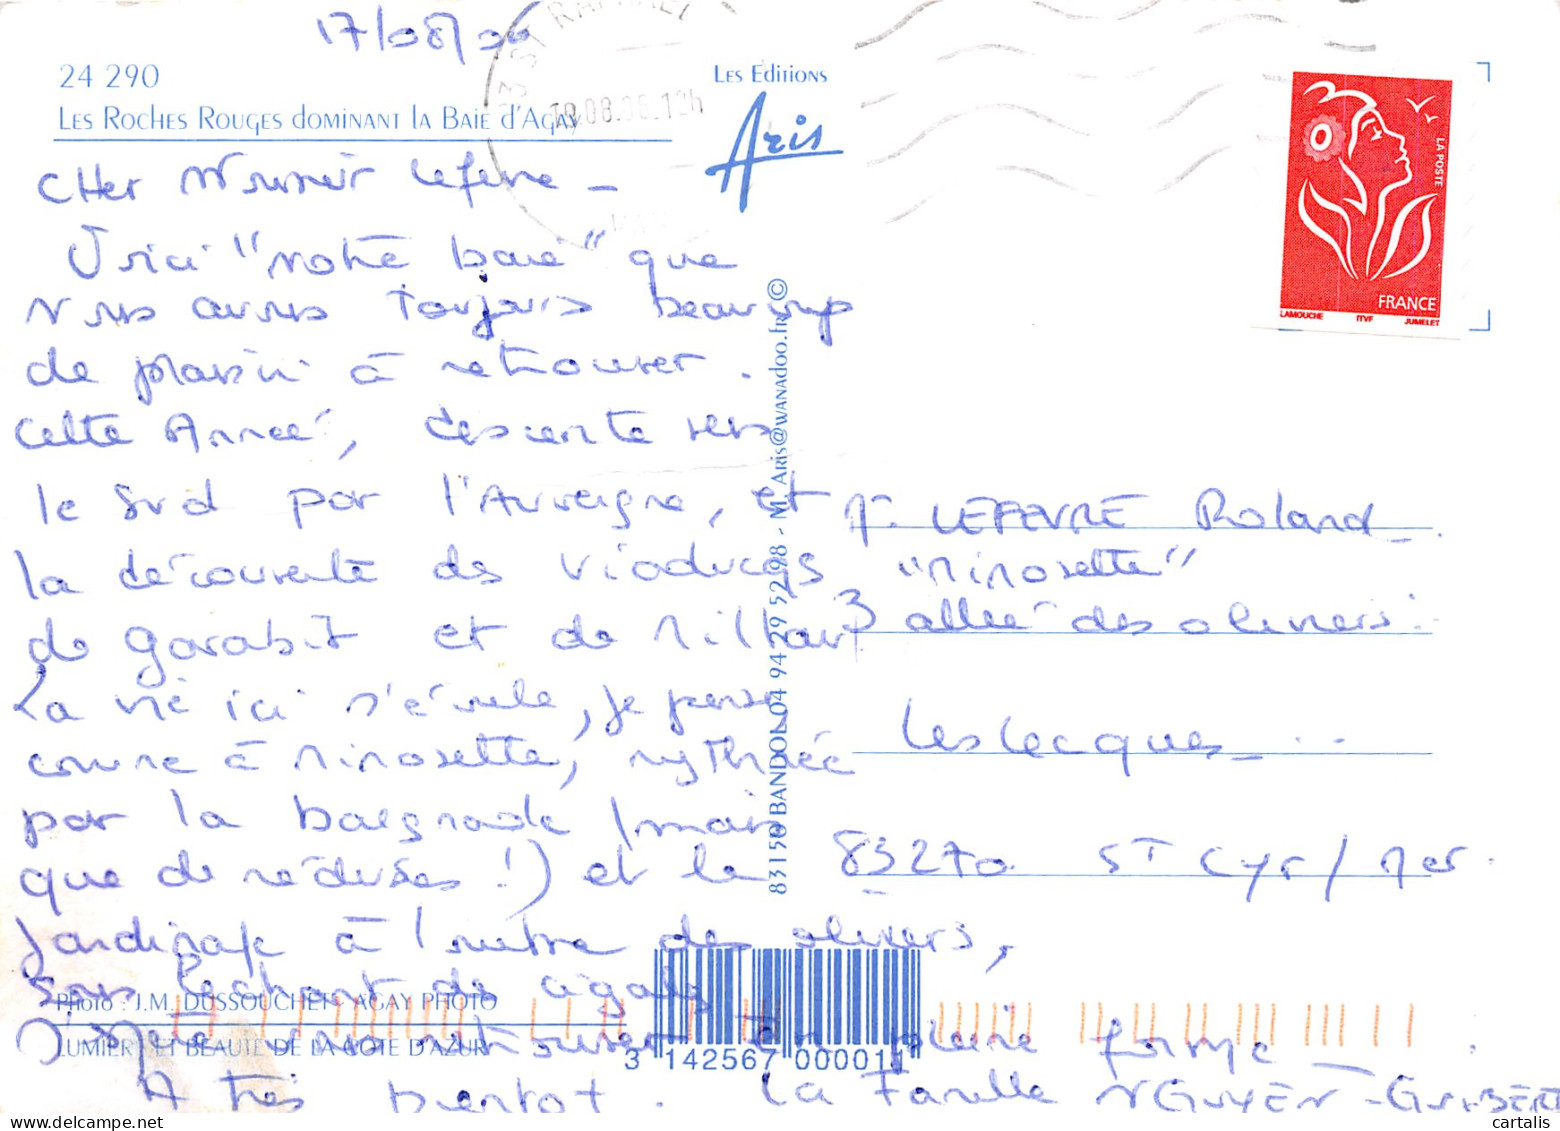 17/08/06
24 290
Les Roches Rouges dominant la Baie d'Agay
Les Editions
Aris
83 ST RAPHAEL
19.08.06.12h
LA POSTE
FRANCE
LAMOUCHE ITVF JUMELET
CHer Monsieur Lefevre -
Voici "notre baie" que
nous avons toujours beaucoup
de plaisir à retrouver.
Cette Année, descente vers
le Sud par l'Auvergne, et
la découverte des viaducs
de Garabit et de Millau.
La vie ici s'écoule, je pense,
comme à Mirosette, rythmée
par la baignade (mais
que de méduses !) et le
jardinage à l'ombre des oliviers,
sous le chant des cigales
espère vous retrouver en pleine forme -
A très bientôt. La Famille NGUYEN-GUIBERT
M. LEFEVRE Roland
"Mirosette"
3 allée des oliviers
Les Lecques
83270 ST Cyr / Mer
83150 BANDOL 04 94 29 52 98 - M. Aris@wanadoo.fr ©
Photo : J.M. DUSSOUCHET - AGAY PHOTO
LUMIERE ET BEAUTE DE LA COTE D'AZUR
3 142567 000011
cartalis